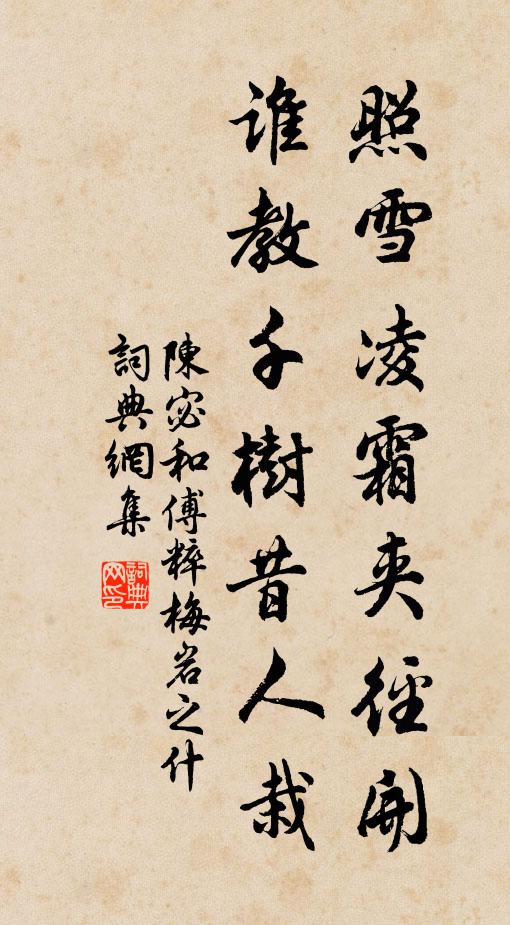 照雪凌霜夾徑開
誰教千樹昔人栽
陳宓和傅粹梅岩之什
詞典網集
詞典网印